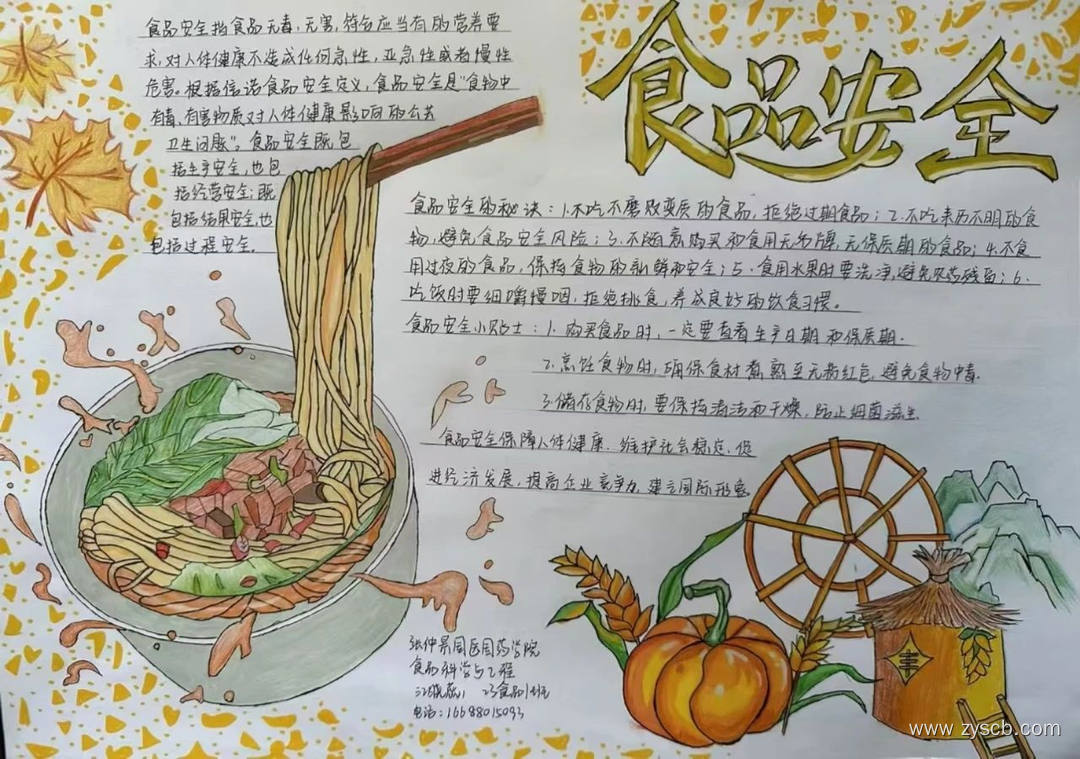 食品安全
食品安全指食品无毒、无害,符合应当有的营养要
求,对人体健康不造成任何急性,亚急性或者慢性
危害。根据倍诺食品安全定义,食品安全是"食物中
有毒、有害物质对人体健康影响的公共
卫生问题"。食品安全既包
括生产安全,也包
括经营安全;既
包括结果安全,也
包括过程安全.
食品安全的秘诀:1.不吃不腐败变质的食品,拒绝过期食品;2.不吃来历不明的食
物,避免食品安全风险;3.不随意购买和食用无名牌,无保质期的食品;4.不食
用过夜的食品,保持食物的新鲜和安全;5.食用水果时要洗净,避免农药残留;6.
吃饭时要细嚼慢咽,拒绝挑食,养成良好的饮食习惯。
食品安全小贴士:1.购买食品时,一定要查看生产日期和保质期.
2.烹饪食物时,确保食材煮熟至无粉红色,避免食物中毒.
3.储存食物时,要保持清洁和干燥,防止细菌滋生
食品安全保障人体健康.维护社会稳定,促
进经济发展,提高企业竞争力,建立国际形象
张仲景国医国药学院
食品科学与工程
23食品1班
电话:16698015093
www.zyscb.com